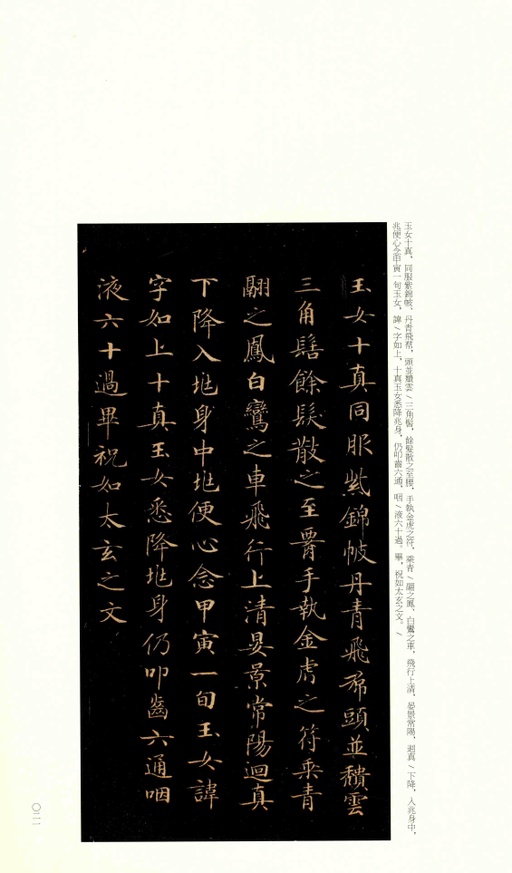 玉女十真,同服紫錦帔、丹青飛帬,頭並穨雲╲三角髻,餘髮散之至腰,手執金虎之符,乘青╲翮之鳳、白鸞之車,飛行上清,晏景常陽,迴真╲下降,入兆身中,
兆便心念甲寅一旬玉女,諱╲字如上,十真玉女悉降兆身,仍叩齒六通,咽╲液六十過。畢,祝如太玄之文。╲
玉女十真同服紫錦帔丹青飛帬頭並穨雲
三角髻餘髮散之至腰手執金虎之符乘青
翮之鳳白鸞之車飛行上清晏景常陽迴真
下降入兆身中兆便心念甲寅一旬玉女諱
字如上十真玉女悉降兆身仍叩齒六通咽
液六十過畢祝如太玄之文
〇二一